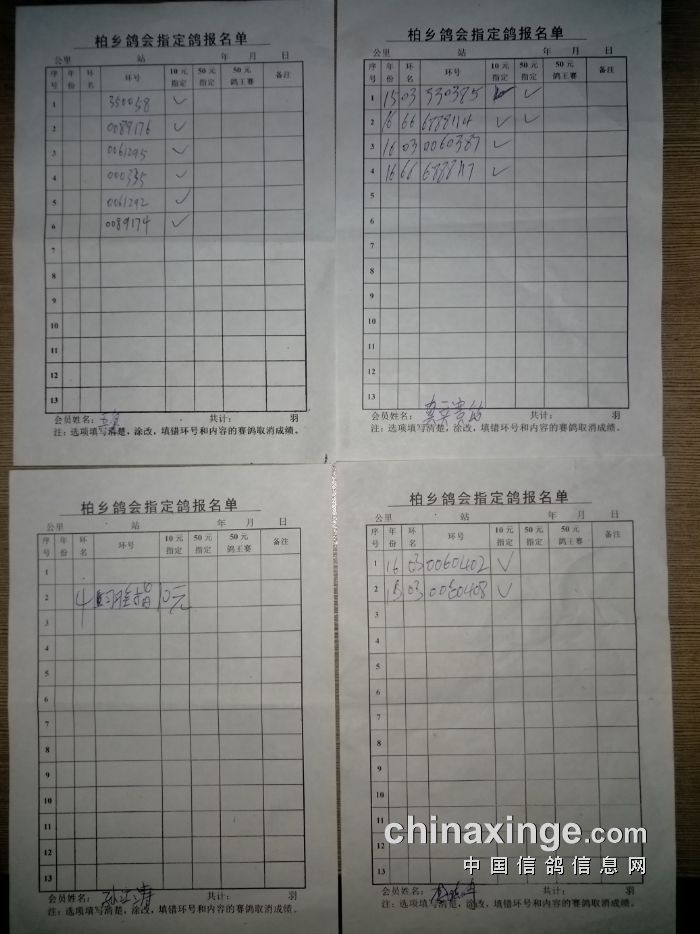 柏乡鸽会指定鸽报名单
公里 站 年 月 日
序号 年份 环名 环号 10元指定 50元指定 50元鸽王赛 备注
1 350058 ✓
2 0089176 ✓
3 0061295 ✓
4 000335 ✓
5 0061292 ✓
6 0089174 ✓
7
8
9
10
11
12
13
会员姓名： 共计： 羽
注：选项填写清楚，涂改，填错环号和内容的赛鸽取消成绩。
柏乡鸽会指定鸽报名单
公里 站 年 月 日
序号 年份 环名 环号 10元指定 50元指定 50元鸽王赛 备注
1 15 03 530385 ✓ ✓
2 16 66 ✓ ✓
3 16 03 0060387 ✓
4 16 66 ✓
5
6
7
8
9
10
11
12
13
会员姓名： 共计： 羽
注：选项填写清楚，涂改，填错环号和内容的赛鸽取消成绩。
柏乡鸽会指定鸽报名单
公里 站 年 月 日
序号 年份 环名 环号 10元指定 50元指定 50元鸽王赛 备注
1
2 4 指10元
3
4
5
6
7
8
9
10
11
12
13
会员姓名： 共计： 羽
注：选项填写清楚，涂改，填错环号和内容的赛鸽取消成绩。
柏乡鸽会指定鸽报名单
公里 站 年 月 日
序号 年份 环名 环号 10元指定 50元指定 50元鸽王赛 备注
1 16 03 0060402 ✓
2 15 03 ✓
3
4
5
6
7
8
9
10
11
12
13
会员姓名： 共计： 羽
注：选项填写清楚，涂改，填错环号和内容的赛鸽取消成绩。
chinaxinge.com
中国信鸽信息网